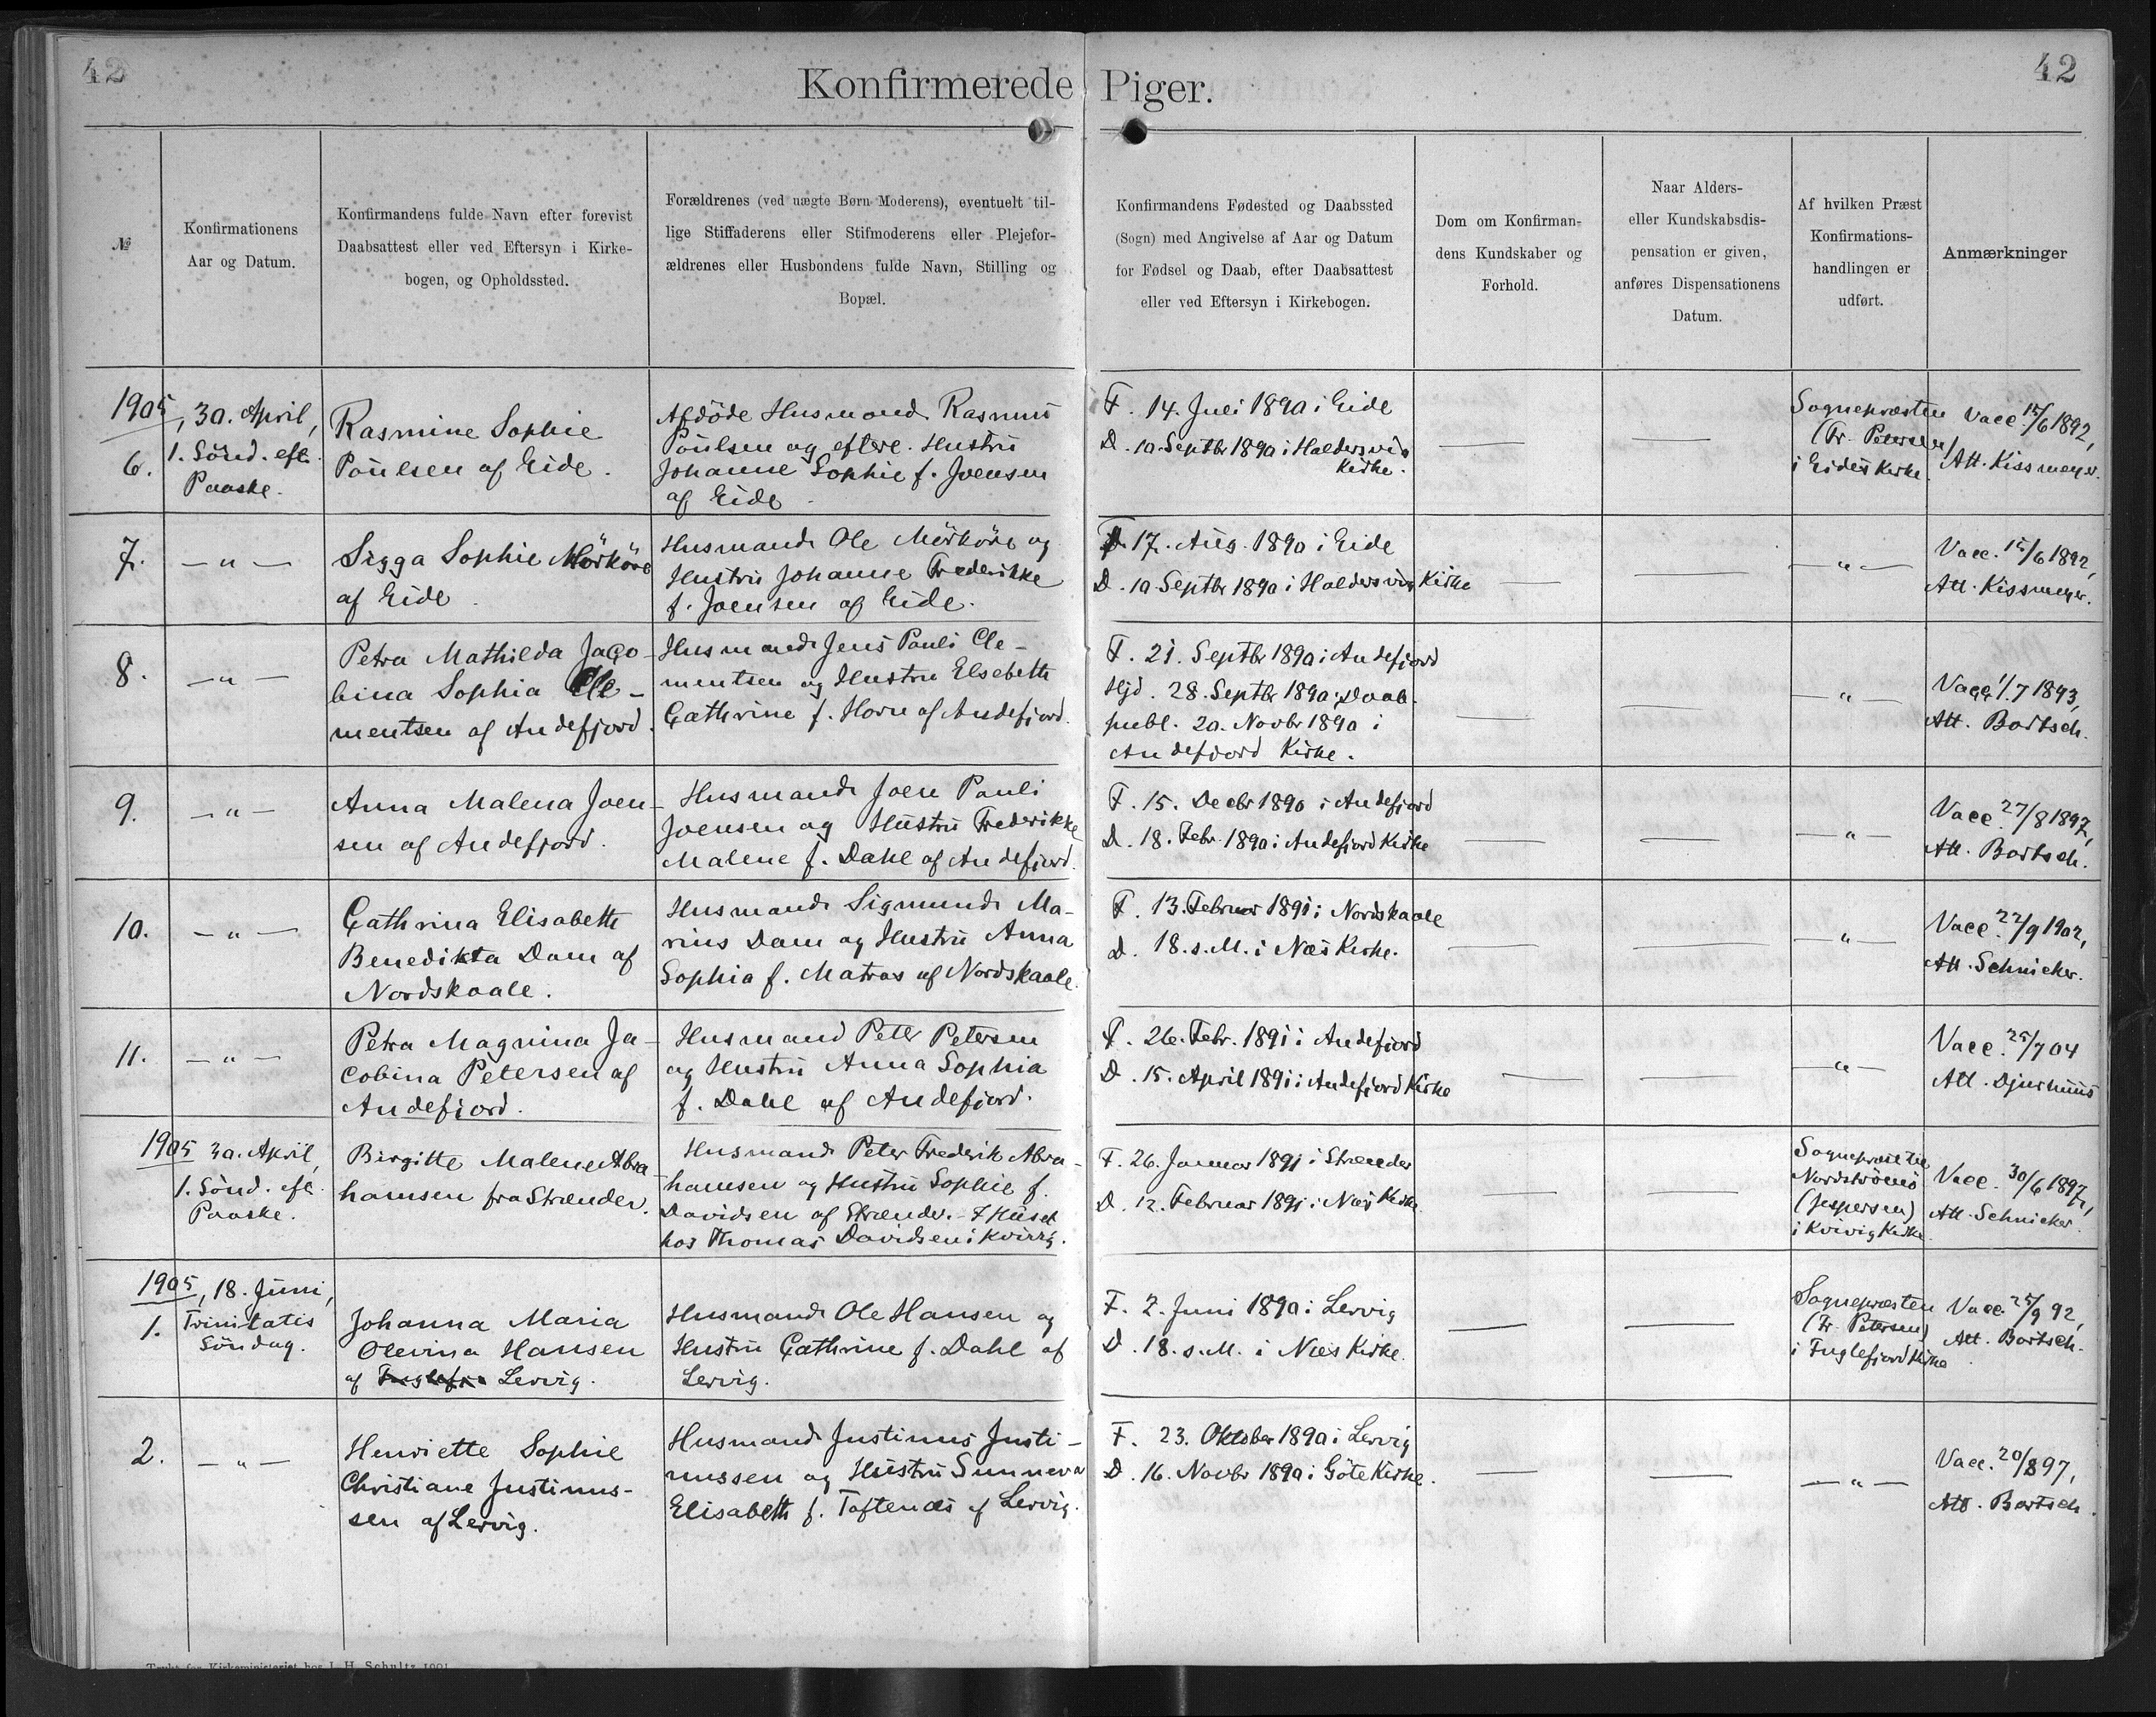 42
Konfirmerede Piger.
42
№
Konfirmationens
Aar og Datum.
Konfirmandens fulde Navn efter forevist
Daabsattest eller ved Eftersyn i Kirke-
bogen, og Opholdssted.
Forældrenes (ved uægte Børn Moderens), eventuelt til-
lige Stiffaderens eller Stifmoderens eller Plejefor-
ældrenes eller Husbondens fulde Navn, Stilling og
Bopæl.
Konfirmandens Fødested og Daabssted
(Sogn) med Angivelse af Aar og Datum
for Fødsel og Daab, efter Daabsattest
eller ved Eftersyn i Kirkebogen.
Dom om Konfirman-
dens Kundskaber og
Forhold.
Naar Alders-
eller Kundskabsdis-
pensation er given,
anføres Dispensationens
Datum.
Af hvilken Præst
Konfirmations-
handlingen er
udført.
Anmærkninger
1905, 30. April,
6.
1. Sönd. eft.
Paaske.
Rasmine Sophie
Poulsen af Eide.
Afdöde Husmand Rasmus
Poulsen og efterl. Hustru
Johanne Sophie f. Joensen
af Eide
F. 14. Juli 1890 i Eide
D. 10 Septbr 1890 i Haldersvig
Kirke.
Sognepræsten
(Fr. Petersen)
i Eides Kirke.
Vacc. 15/6 1892,
Att. Kissmeyer.
7.
— " —
Sigga Sophie Mörköre
af Eide
Husmand Ole Mörköre og
Hustru Johanne Frederikke
f. Joensen af Eide.
F. 17. Aug. 1890 i Eide
D. 10 Septbr 1890 i Haldersvig Kirke
— " —
Vacc. 15/6 1892,
Att. Kissmeyer.
8.
— " —
Petra Mathilda Jaco-
bina Sophia Cle-
mentsen af Andefjord.
Husmand Jens Pauli Cle-
mentsen og Hustru Elsebeth
Cathrine f. Horn af Andefjord.
F. 21. Septbr 1890 i Andefjord
Hjd. 28. Septbr 1890; Daab.
publ. 20. Novbr 1890 i
Andefjord Kirke.
— " —
Vacc. 1/7 1893,
Att. Bartsch.
9.
— " —
Anna Malena Joen-
sen af Andefjord.
Husmand Joen Pauli
Joensen og Hustru Frederikke
Malene f. Dahl af Andefjord.
F. 15. Decbr 1890 i Andefjord
D. 18. Febr. 1890 i Andefjord Kirke
— " —
Vacc. 27/8 1897,
Att. Bartsch.
10.
— " —
Cathrina Elisabeth
Benedikta Dam af
Nordskaale.
Husmand Sigmund Ma-
rius Dam og Hustru Anna
Sophia f. Matras af Nordskaale.
F. 13. Februar 1891 i Nordskaale
D. 18. s. M. i Næs Kirke.
— " —
Vacc. 22/9 1902,
Att. Schnicker.
11.
— " —
Petra Magnina Ja-
cobina Petersen af
Andefjord.
Husmand Peter Petersen
og Hustru Anna Sophia
f. Dahl af Andefjord.
F. 26. Febr. 1891 i Andefjord
D. 15. April 1891 i Andefjord Kirke
— " —
Vacc. 25/7 04
Att. Djurhuus
1905 30. April,
1. Sönd. eft.
Paaske.
Birgitte Malene Abra-
hamsen fra Strænder.
Husmand Peter Frederik Abra-
hamsen og Hustru Sophie f.
Davidsen af Strænder. - I Huset
hos Thomas Davidsen i Kvivig.
F. 26. Januar 1891 i Strænder
D. 12. Februar 1891 i Næs Kirke
Sognepræst til
Nordströmö
(Jespersen)
i Kvivig Kirke.
Vacc. 30/6 1897,
Att. Schnicker.
1905, 18. Juni,
1.
Trinitatis
Söndag.
Johanna Maria
Olevina Hansen
af Lervig.
Husmand Ole Hansen og
Hustru Cathrine f. Dahl af
Lervig.
F. 2. Juni 1890 i Lervig
D. 18. s. M. i Næs Kirke.
Sognepræsten
(Fr. Petersen)
i Fuglefjord Kirke
Vacc. 25/9 92,
Att. Bartsch.
2.
— " —
Henriette Sophie
Christiane Justinus-
sen af Lervig.
Husmand Justinus Justi-
nussen og Hustru Sunneva
Elisabeth f. Toftenæs af Lervig.
F. 23. Oktober 1890 i Lervig
D. 16. Novbr 1890 i Göte Kirke.
— " —
Vacc. 20/8 97,
Att. Bartsch.